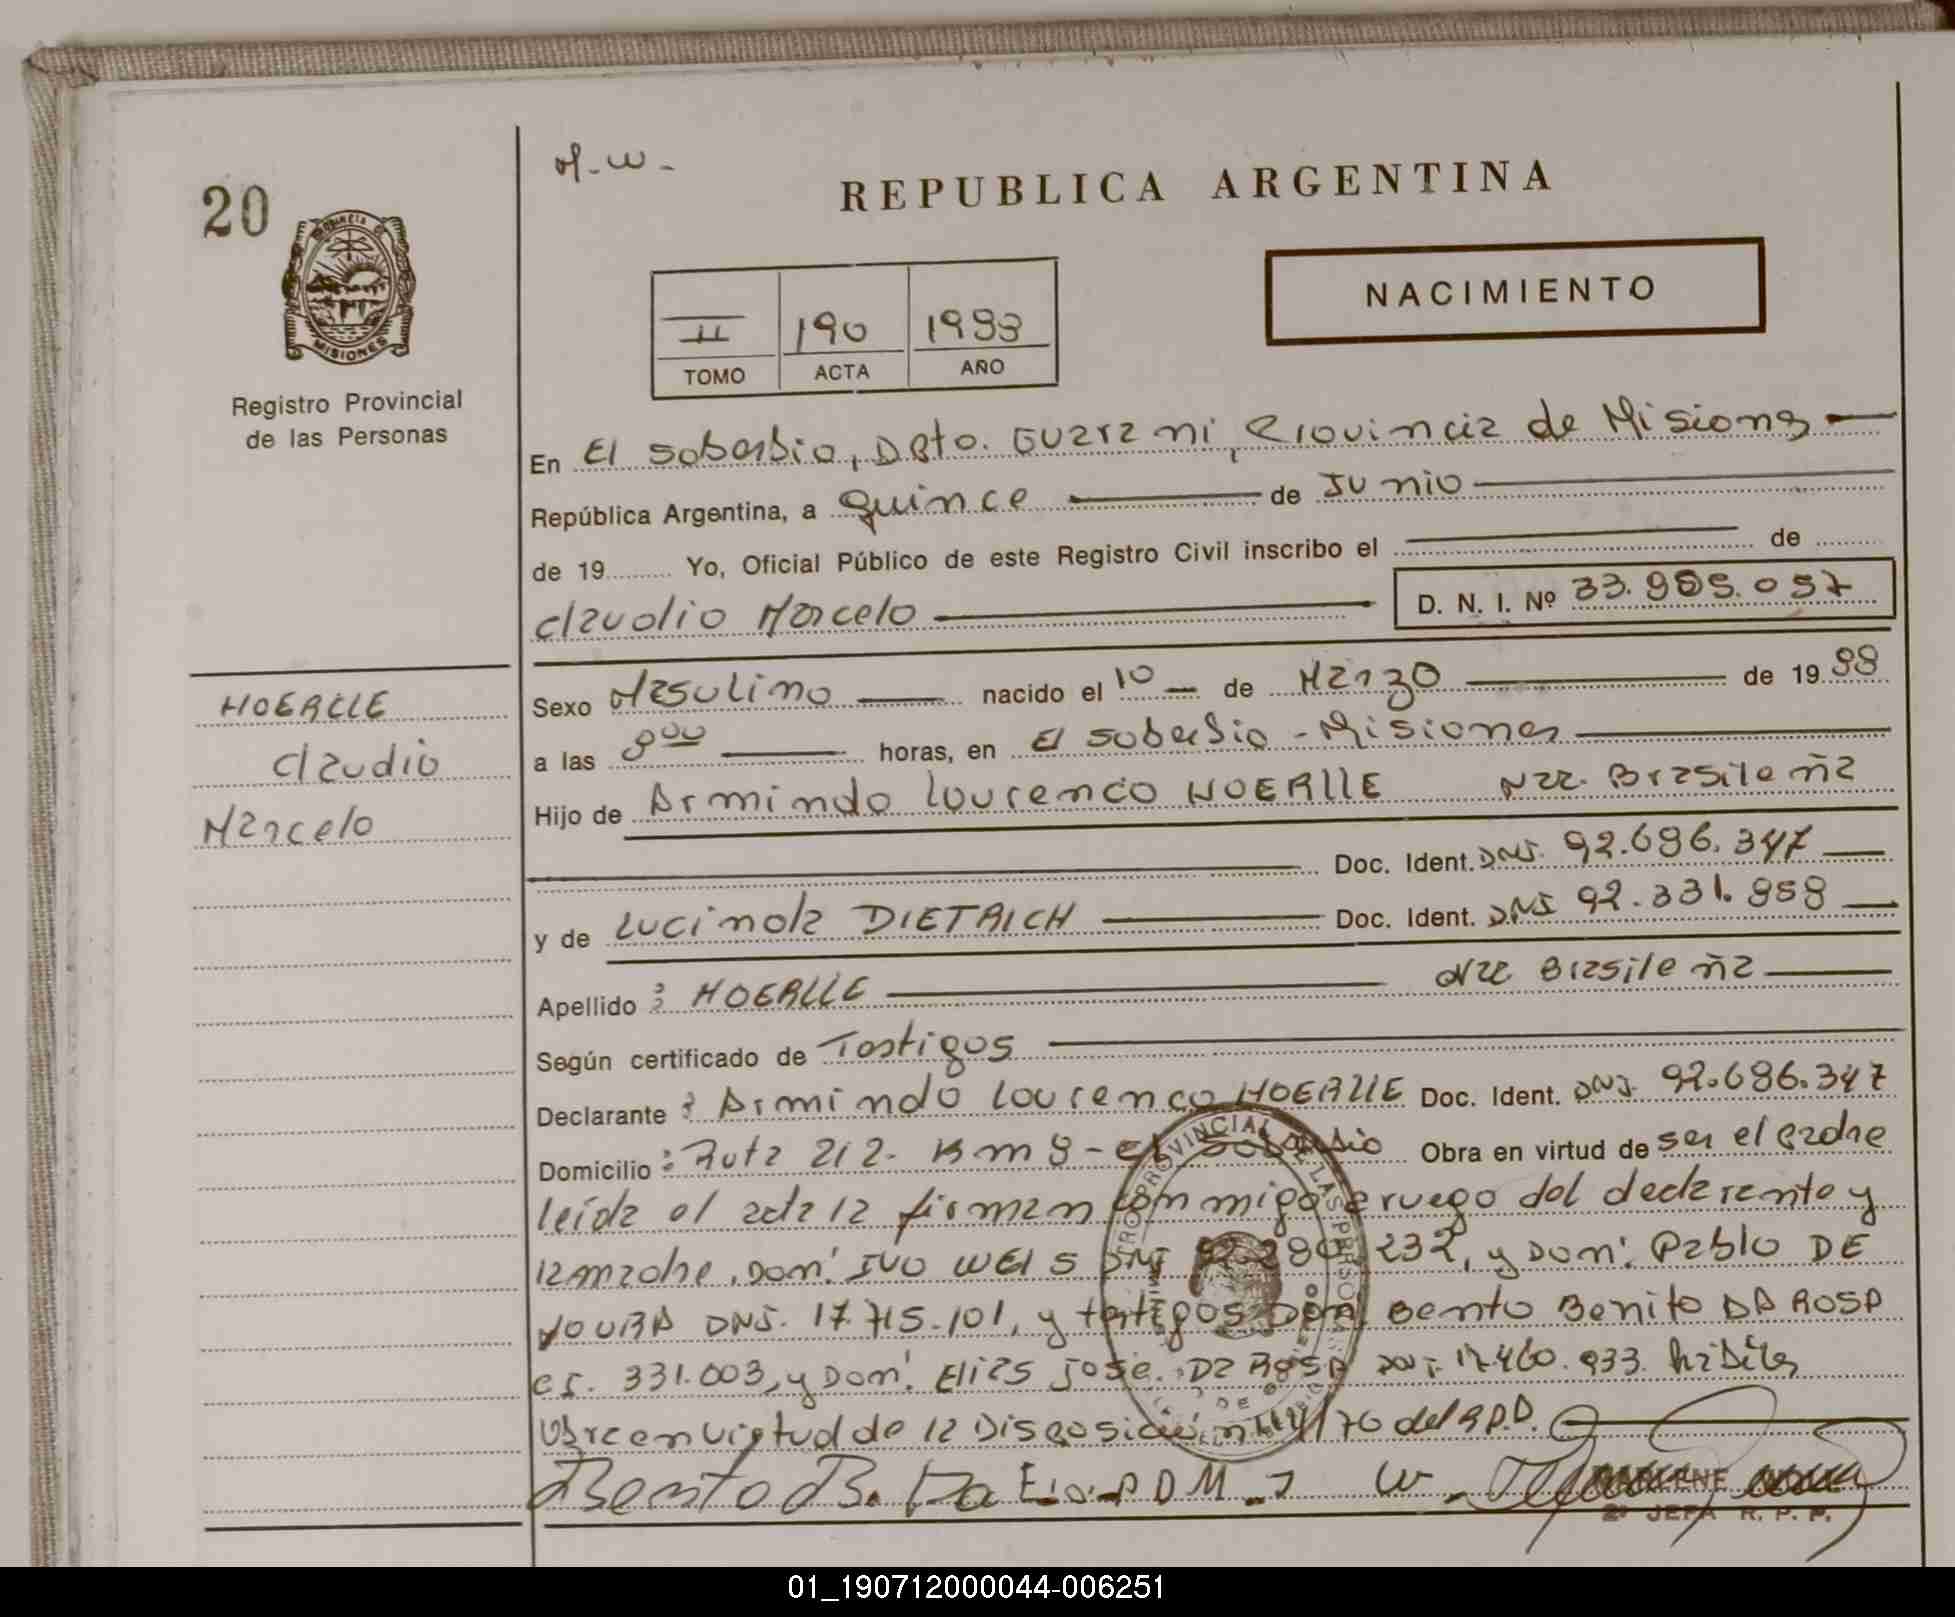 20
M-W-
REPUBLICA ARGENTINA
PROVINCIA DE
MISIONES
Registro Provincial
de las Personas
II 190 1993
TOMO ACTA AÑO
NACIMIENTO
En El Soberbio, Dpto. Guarani, Provincia de Misiones
República Argentina, a quince de Junio
de 19 Yo, Oficial Público de este Registro Civil inscribo el de
Claudio Marcelo D. N. I. Nº
HOERLLE
Claudio
Marcelo
Sexo Masulino nacido el 10 de Marzo de 19 88
a las 8 00 horas, en El Soberbio - Misiones
Hijo de Armindo Lourenco HOERLLE Nac. Brasileña
Doc. Ident. DNI. 92.696.347
y de Lucinda DIETRICH Doc. Ident. DNI 92.331.958
Apellido : HOERLLE Nac Brasileña
Según certificado de Testigos
Declarante : Armindo Lourenco HOERLLE Doc. Ident. DNI. 92.696.347
Domicilio : Ruta 212. Km 8 - El Soberbio Obra en virtud de ser el padre
leída el acta la firman conmigo a ruego del declarante y
la madre, Don: IVO WEIS DNI 232, y Don: Pablo DE
MOURA DNI. 17.715.101, y testigos Don: Bento Benito DA ROSA
C.I. 331.003, y Don: Elias Jose. Da Rosa DNI 17.460.933. hábiles
Obra en virtud de la Disposición 141/70 del R.P.P.
Bento B. Da E.J.D.R P D M. I W.
MARLENE
2ª JEFA R. P. P.
01_190712000044-006251